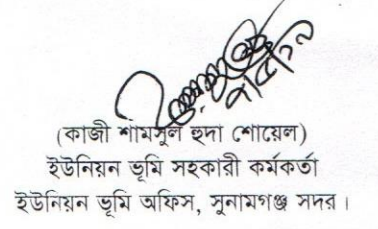 (কাজী শামসুল হুদা শোয়েল)
ইউনিয়ন ভূমি সহকারী কর্মকর্তা
ইউনিয়ন ভূমি অফিস, সুনামগঞ্জ সদর।